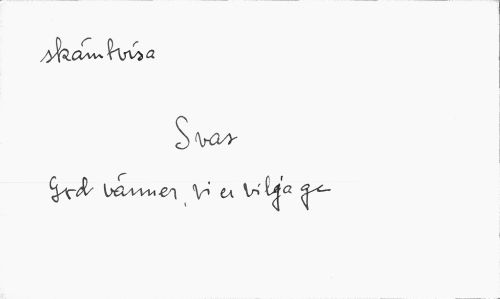 skämtvisa
Svar
God vänner, vi er vilja ge